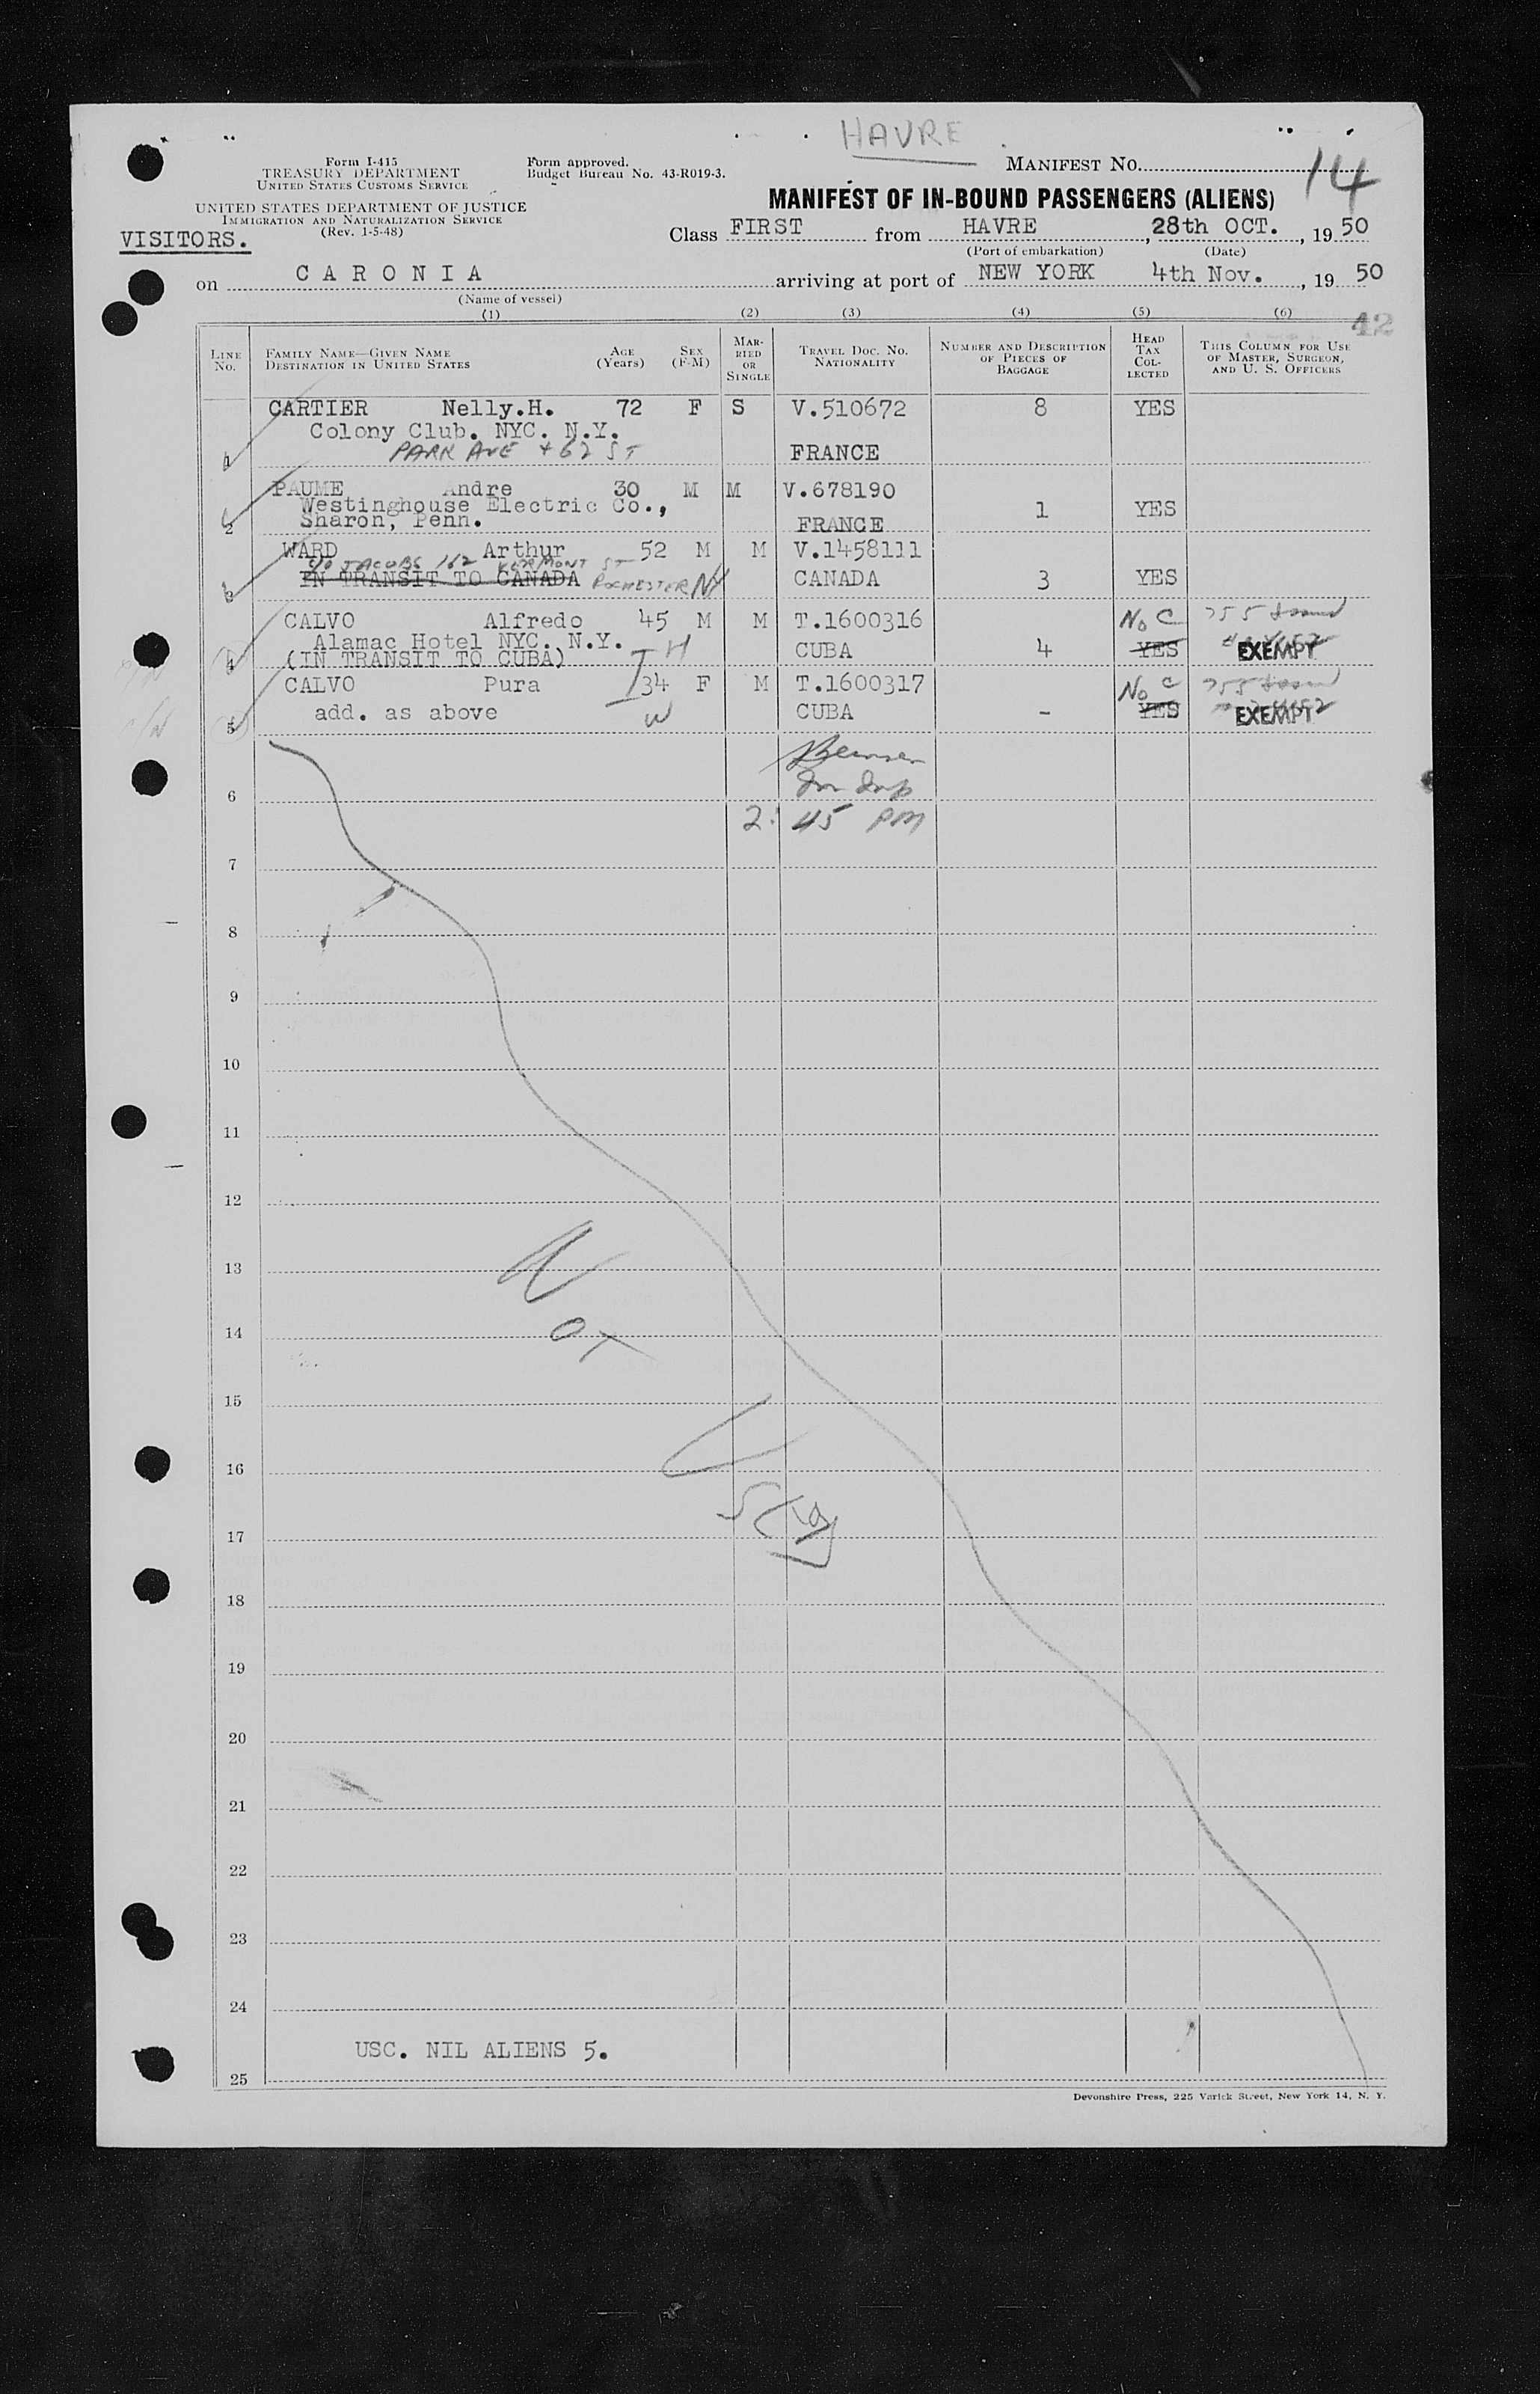 HAVRE
Form I-415
TREASURY DEPARTMENT
UNITED STATES CUSTOMS SERVICE
Form approved.
Budget Bureau No. 43-R019-3.
MANIFEST No. 14
UNITED STATES DEPARTMENT OF JUSTICE
IMMIGRATION AND NATURALIZATION SERVICE
(Rev. 1-5-48)
MANIFEST OF IN-BOUND PASSENGERS (ALIENS)
VISITORS.
Class FIRST from HAVRE, 28th OCT., 1950
(Port of embarkation) (Date)
on CARONIA arriving at port of NEW YORK 4th Nov., 1950
(Name of vessel)
(1) (2) (3) (4) (5) (6)
42
LINE No. FAMILY NAME—GIVEN NAME DESTINATION IN UNITED STATES AGE (Years) SEX (F-M) MARRIED OR SINGLE TRAVEL DOC. NO. NATIONALITY NUMBER AND DESCRIPTION OF PIECES OF BAGGAGE HEAD TAX COLLECTED THIS COLUMN FOR USE OF MASTER, SURGEON, AND U. S. OFFICERS
CARTIER Nelly.H. 72 F S V.510672 8 YES
Colony Club. NYC. N.Y.
1 PARK AVE + 62 ST FRANCE
PAUME Andre 30 M M V.678190
Westinghouse Electric Co., 1 YES
2 Sharon, Penn. FRANCE
WARD Arthur 52 M M V.1458111
c/o JACOBS 162 VERMONT ST
3 IN TRANSIT TO CANADA ROCHESTER NY CANADA 3 YES
CALVO Alfredo 45 M M T.1600316 No C
Alamac Hotel NYC. N.Y. H CUBA 4 YES EXEMPT
4 (IN TRANSIT TO CUBA)
CALVO Pura 34 F M T.1600317 No C
5 add. as above W CUBA - YES EXEMPT
6
2:45 PM
7
8
9
10
11
12
13
14
15
16
17
18
19
20
21
22
23
24
USC. NIL ALIENS 5.
25
Devonshire Press, 225 Varick Street, New York 14, N. Y.